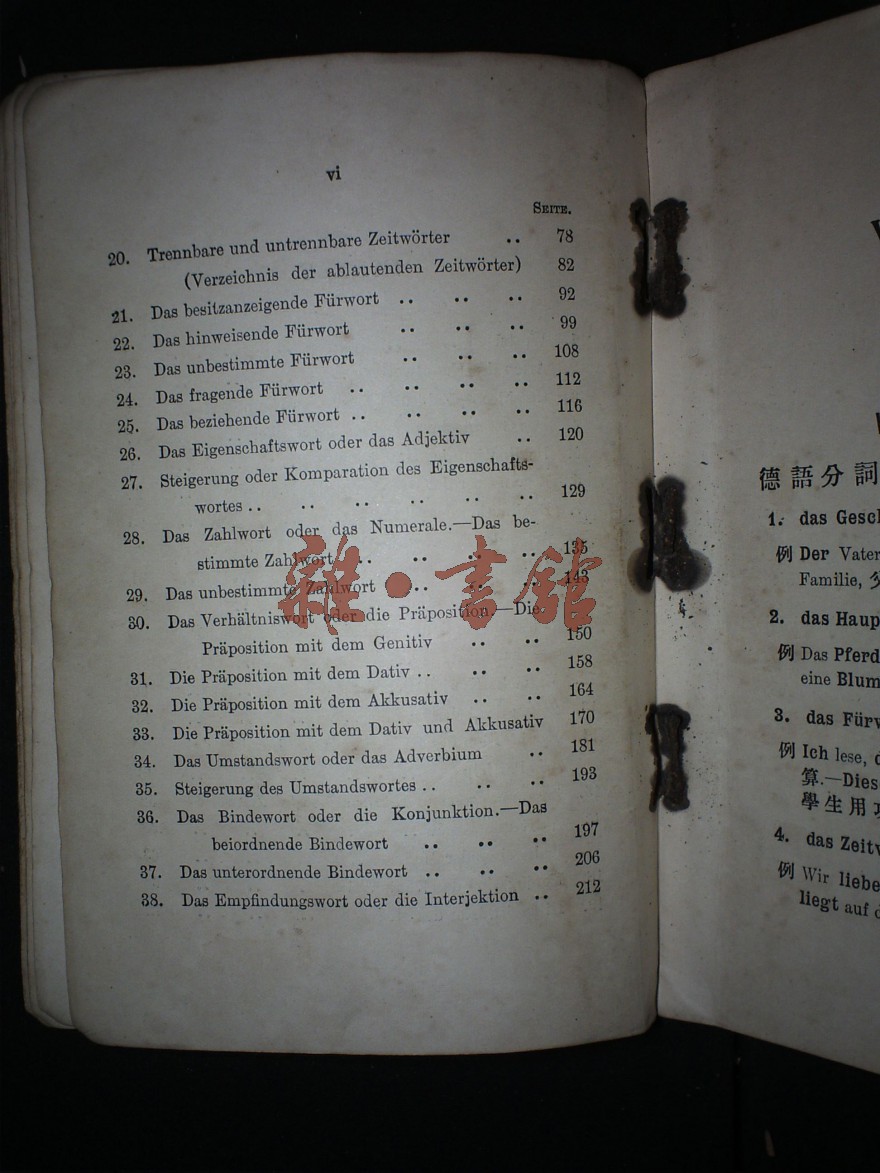 vi
SEITE.
20. Trennbare und untrennbare Zeitwörter .. 78
(Verzeichnis der ablautenden Zeitwörter) 82
21. Das besitzanzeigende Fürwort .. .. .. 92
22. Das hinweisende Fürwort .. .. .. 99
23. Das unbestimmte Fürwort .. .. .. 108
24. Das fragende Fürwort .. .. .. .. 112
25. Das beziehende Fürwort .. .. .. .. 116
26. Das Eigenschaftswort oder das Adjektiv .. 120
27. Steigerung oder Komparation des Eigenschafts-
wortes .. .. .. .. .. .. 129
28. Das Zahlwort oder das Numerale.—Das be-
stimmte Zahlwort .. .. .. .. 135
29. Das unbestimmte Zahlwort .. .. .. 143
30. Das Verhältniswort oder die Präposition.—Die
Präposition mit dem Genitiv .. .. 150
31. Die Präposition mit dem Dativ .. .. .. 158
32. Die Präposition mit dem Akkusativ .. .. 164
33. Die Präposition mit dem Dativ und Akkusativ 170
34. Das Umstandswort oder das Adverbium .. 181
35. Steigerung des Umstandswortes .. .. .. 193
36. Das Bindewort oder die Konjunktion.—Das
beiordnende Bindewort .. .. .. 197
37. Das unterordnende Bindewort .. .. .. 206
38. Das Empfindungswort oder die Interjektion .. 212
雜·書館
德語分詞
1. das Gesch
例 Der Vater
Familie, 父
2. das Haup
例 Das Pferd
eine Blum
3. das Fürw
例 Ich lese, d
算.—Dies
學生用功
4. das Zeitw
例 Wir liebe
liegt auf d